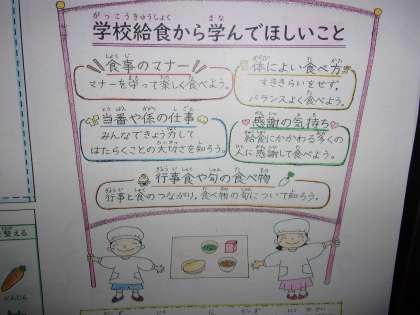 学校給食から学んでほしいこと
食事のマナー
マナーを守って楽しく食べよう。
体によい食べ方
すききらいをせず、
バランスよく食べよう。
当番や係の仕事
みんなできょう力して
はたらくことの大切さを知ろう。
感謝の気持ち
給食にかかわる多くの
人に感謝して食べよう。
行事食や旬の食べ物
行事と食のつながり、食べ物の旬について知ろう。
整える
にんじん